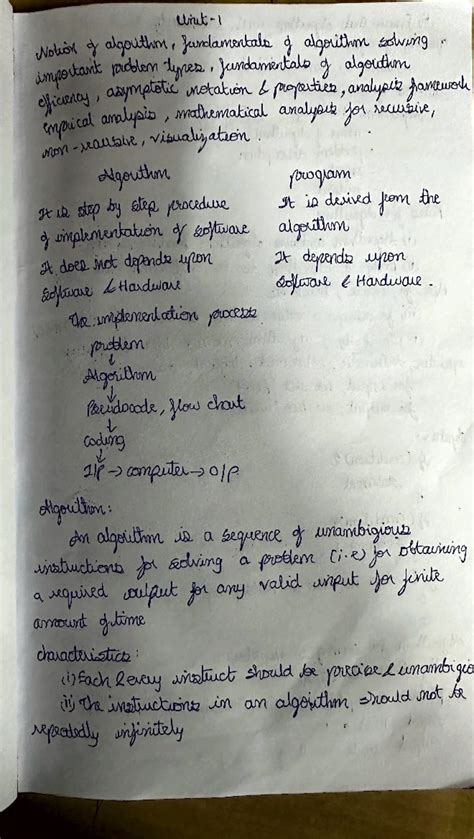 Unit-1
Notion of algorithm, fundamentals of algorithm solving
important problem types, fundamentals of algorithm
efficiency, asymptotic notation & properties, analysis framework
emprical analysis, mathematical analysis for recursive,
non-recursive, visualization.
Algorithm program
It is step by step procedure It is derived from the
of implementation of software algorithm
It does not depends upon It depends upon
software & Hardware software & Hardware.
The implementation process
problem
↓
Algorithm
↓
Pseudocode, flow chart
↓
coding
↓
I/P → computer → O/P
Algorithm:
An algorithm is a sequence of unambigious
instructions for solving a problem (i.e) for obtaining
a required output for any valid input for finite
amount of time
characteristics:
(i) Each & every instruct should be precise & unambigio
(ii) The instructions in an algorithm should not be
repeatedly infinitely